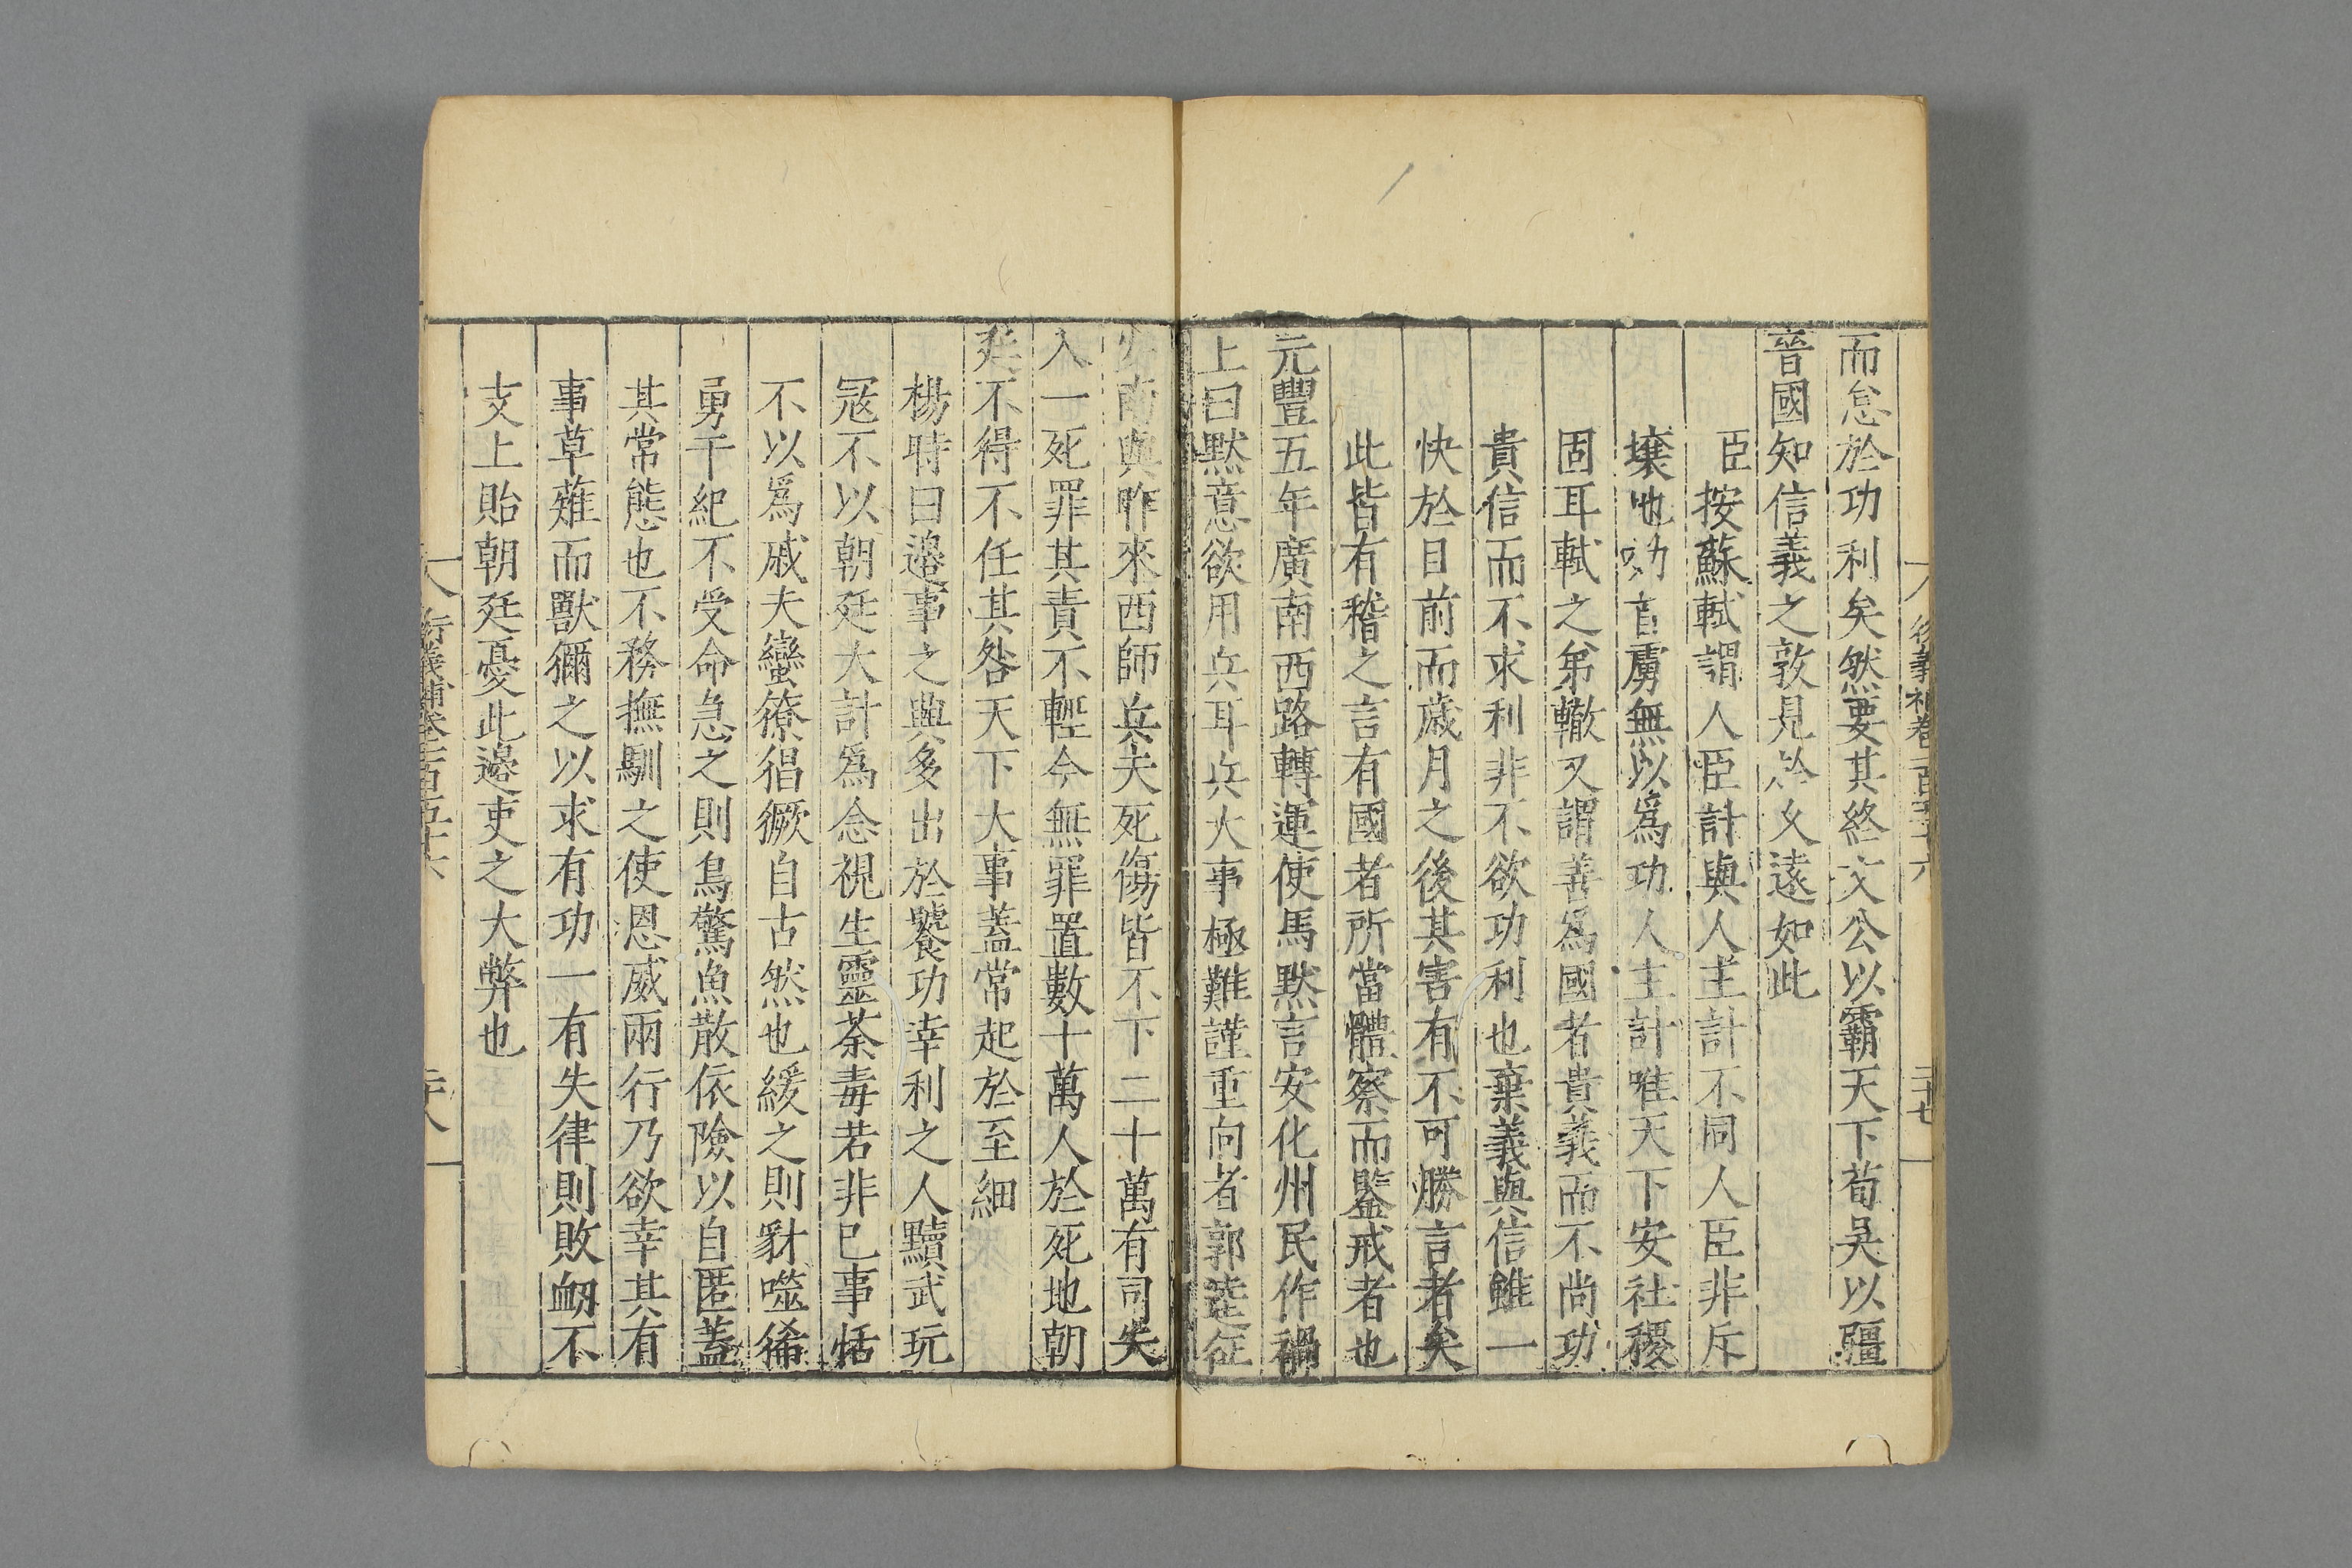 衍義補卷一百五十六　二十七
而怠於功利矣然要其終文公以霸天下荀吳以疆
晉國知信義之效見於久遠如此
臣按蘇軾謂人臣計與人主計不同人臣非斥
壤地功首虜無以爲功人主計唯天下安社稷
固耳軾之弟轍又謂善爲國者貴義而不尚功
貴信而不求利非不欲功利也棄義與信雖一
快於目前而歲月之後其害有不可勝言者矣
此皆有稽之言有國者所當體察而鑒戒者也
元豐五年廣南西路轉運使馬默言安化州民作禍
上曰默意欲用兵耳兵大事極難謹重向者郭逵征
安南與昨來西師兵夫死傷皆不下二十萬有司失
入一死罪其責不輕今無罪置數十萬人於死地朝
廷不得不任其咎天下大事蓋常起於至細
楊時曰邉事之興多出於饕功幸利之人黷武玩
冦不以朝廷大計爲念視生靈荼毒若非已事恬
不以爲戚夫蠻獠猖獗自古然也緩之則豺噬狶
勇干紀不受命急之則鳥驚魚散依險以自匿蓋
其常態也不務撫馴之使恩威兩行乃欲幸其有
事草薙而獸獮之以求有功一有失律則敗衂不
支上貽朝廷憂此邉吏之大弊也
衍義補卷一百五十六　二十八